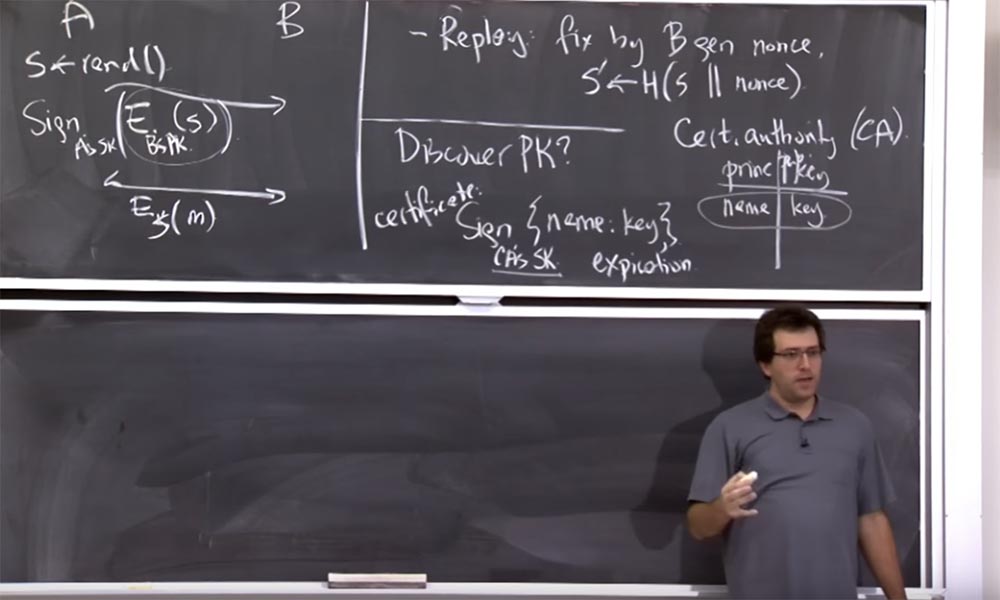 A B
S ← rand()
Sign A's SK (E B's PK (s))
E S' (m)
- Replay: fix by B gen nonce,
S' ← H(s || nonce)
Discover PK?
certificate:
Sign CA's SK {name: key},
expiration
Cert. authority (CA).
princ key
name key